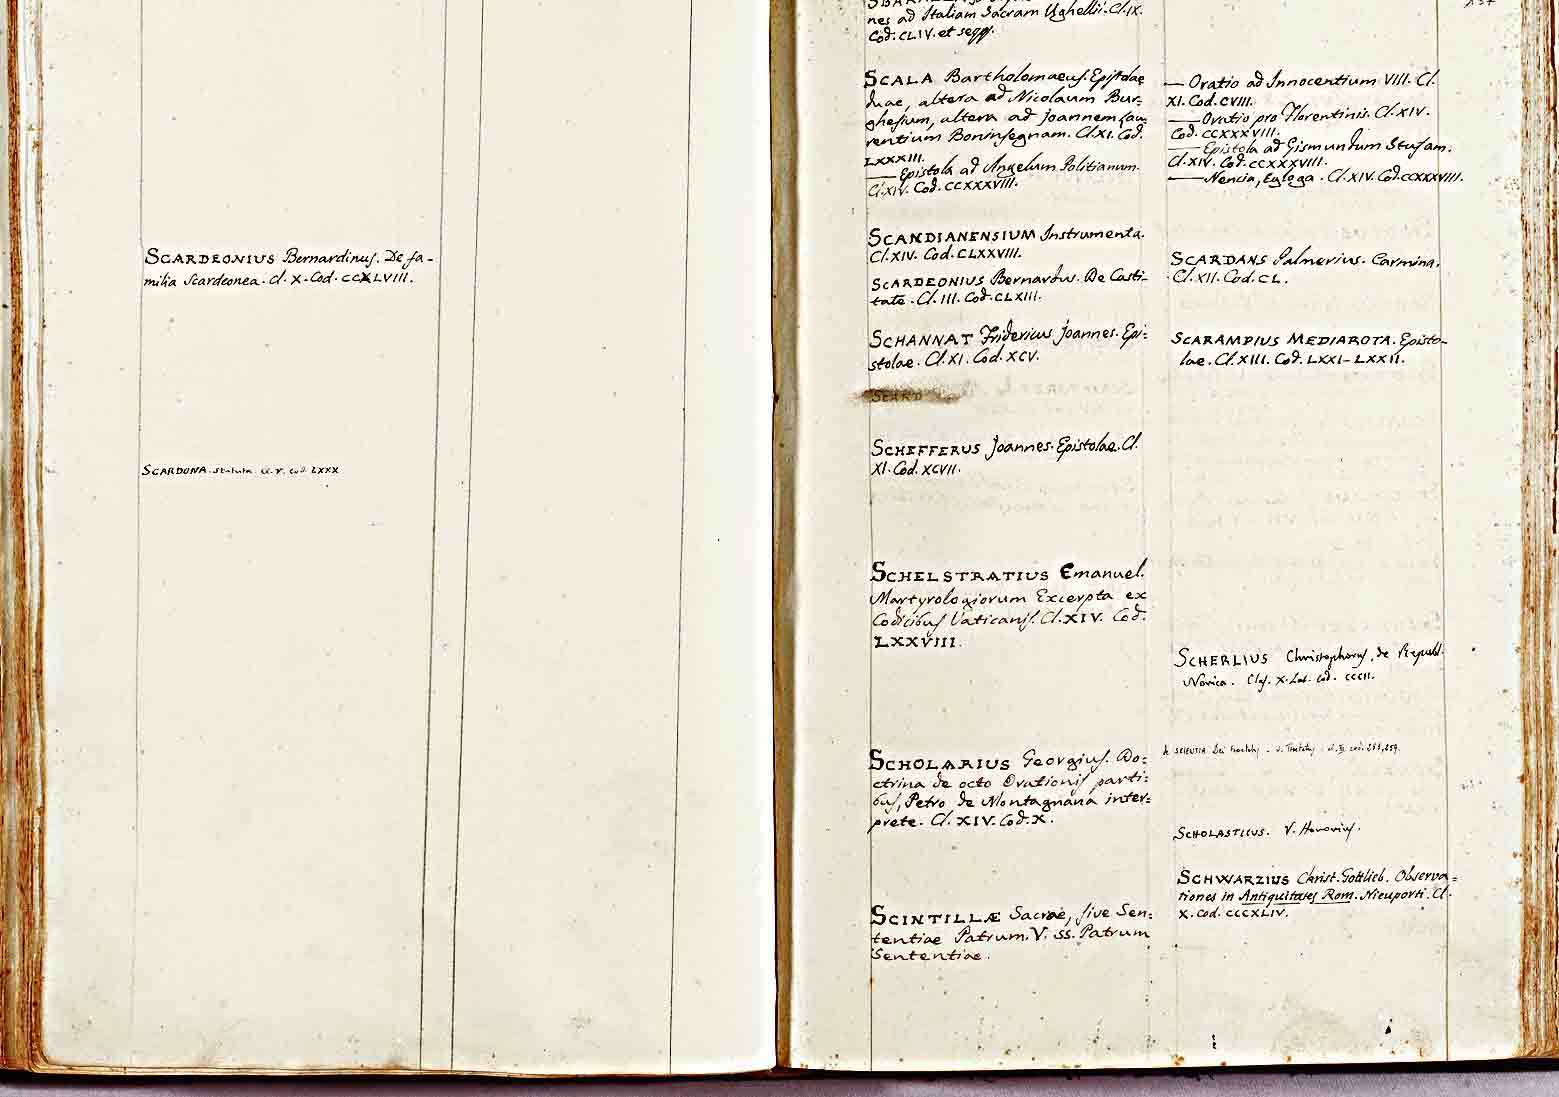 SCARDEONIUS Bernardinus. De fa-
milia Scardeonea. Cl. X. Cod. CCXLVIII.
SCARDONA. Statuta. Cl. V. Cod. LXXX
nes ad Italiam Sacram Ughellii. Cl. IX.
Cod. CLIV. et seqq.
SCALA Bartholomaeus. Epistolae
duae, altera ad Nicolaum Bur-
ghesium, altera ad Joannem Lau-
rentium Boninsegnam. Cl. XI. Cod.
LXXXIII.
— Epistola ad Angelum Politianum.
Cl. XIV. Cod. CCXXXVIII.
SCANDIANENSIUM Instrumenta.
Cl. XIV. Cod. CLXXVIII.
SCARDEONIUS Bernardus. De Casti-
tate. Cl. III. Cod. CLXIII.
SCHANNAT Fridericus Joannes. Epi-
stolae. Cl. XI. Cod. XCV.
SCHEFFERUS Joannes. Epistolae. Cl.
XI. Cod. XCVII.
SCHELSTRATIUS Emanuel.
Martyrologiorum Excerpta ex
Codicibus Vaticanis. Cl. XIV. Cod.
LXXVIII.
SCHOLARIUS Georgius. Do-
ctrina de octo Orationis parti-
bus, Petro de Montagnana inter-
prete. Cl. XIV. Cod. X.
SCINTILLÆ Sacrae, sive Sen-
tentiae Patrum. V. SS. Patrum
Sententiae.
— Oratio ad Innocentium VIII. Cl.
XI. Cod. CVIII.
— Oratio pro Florentinis. Cl. XIV.
Cod. CCXXXVIII.
— Epistola ad Gismundum Stufam.
Cl. XIV. Cod. CCXXXVIII.
— Nencia, Egloga. Cl. XIV. Cod. CCXXXVIII.
SCARDANS Palmerius. Carmina.
Cl. XII. Cod. CL.
SCARAMPIUS MEDIAROTA. Episto-
lae. Cl. XIII. Cod. LXXI-LXXII.
SCHERLIUS Christophorus, de Republ.
Norica. Clas. X. Lat. Cod. CCCII.
SCIENTIA Dei
SCHOLASTICUS. V. Honorius.
SCHWARZIUS Christ. Gottlieb. Observa-
tiones in Antiquitates Rom. Nieuporti. Cl.
X. Cod. CCCXLIV.